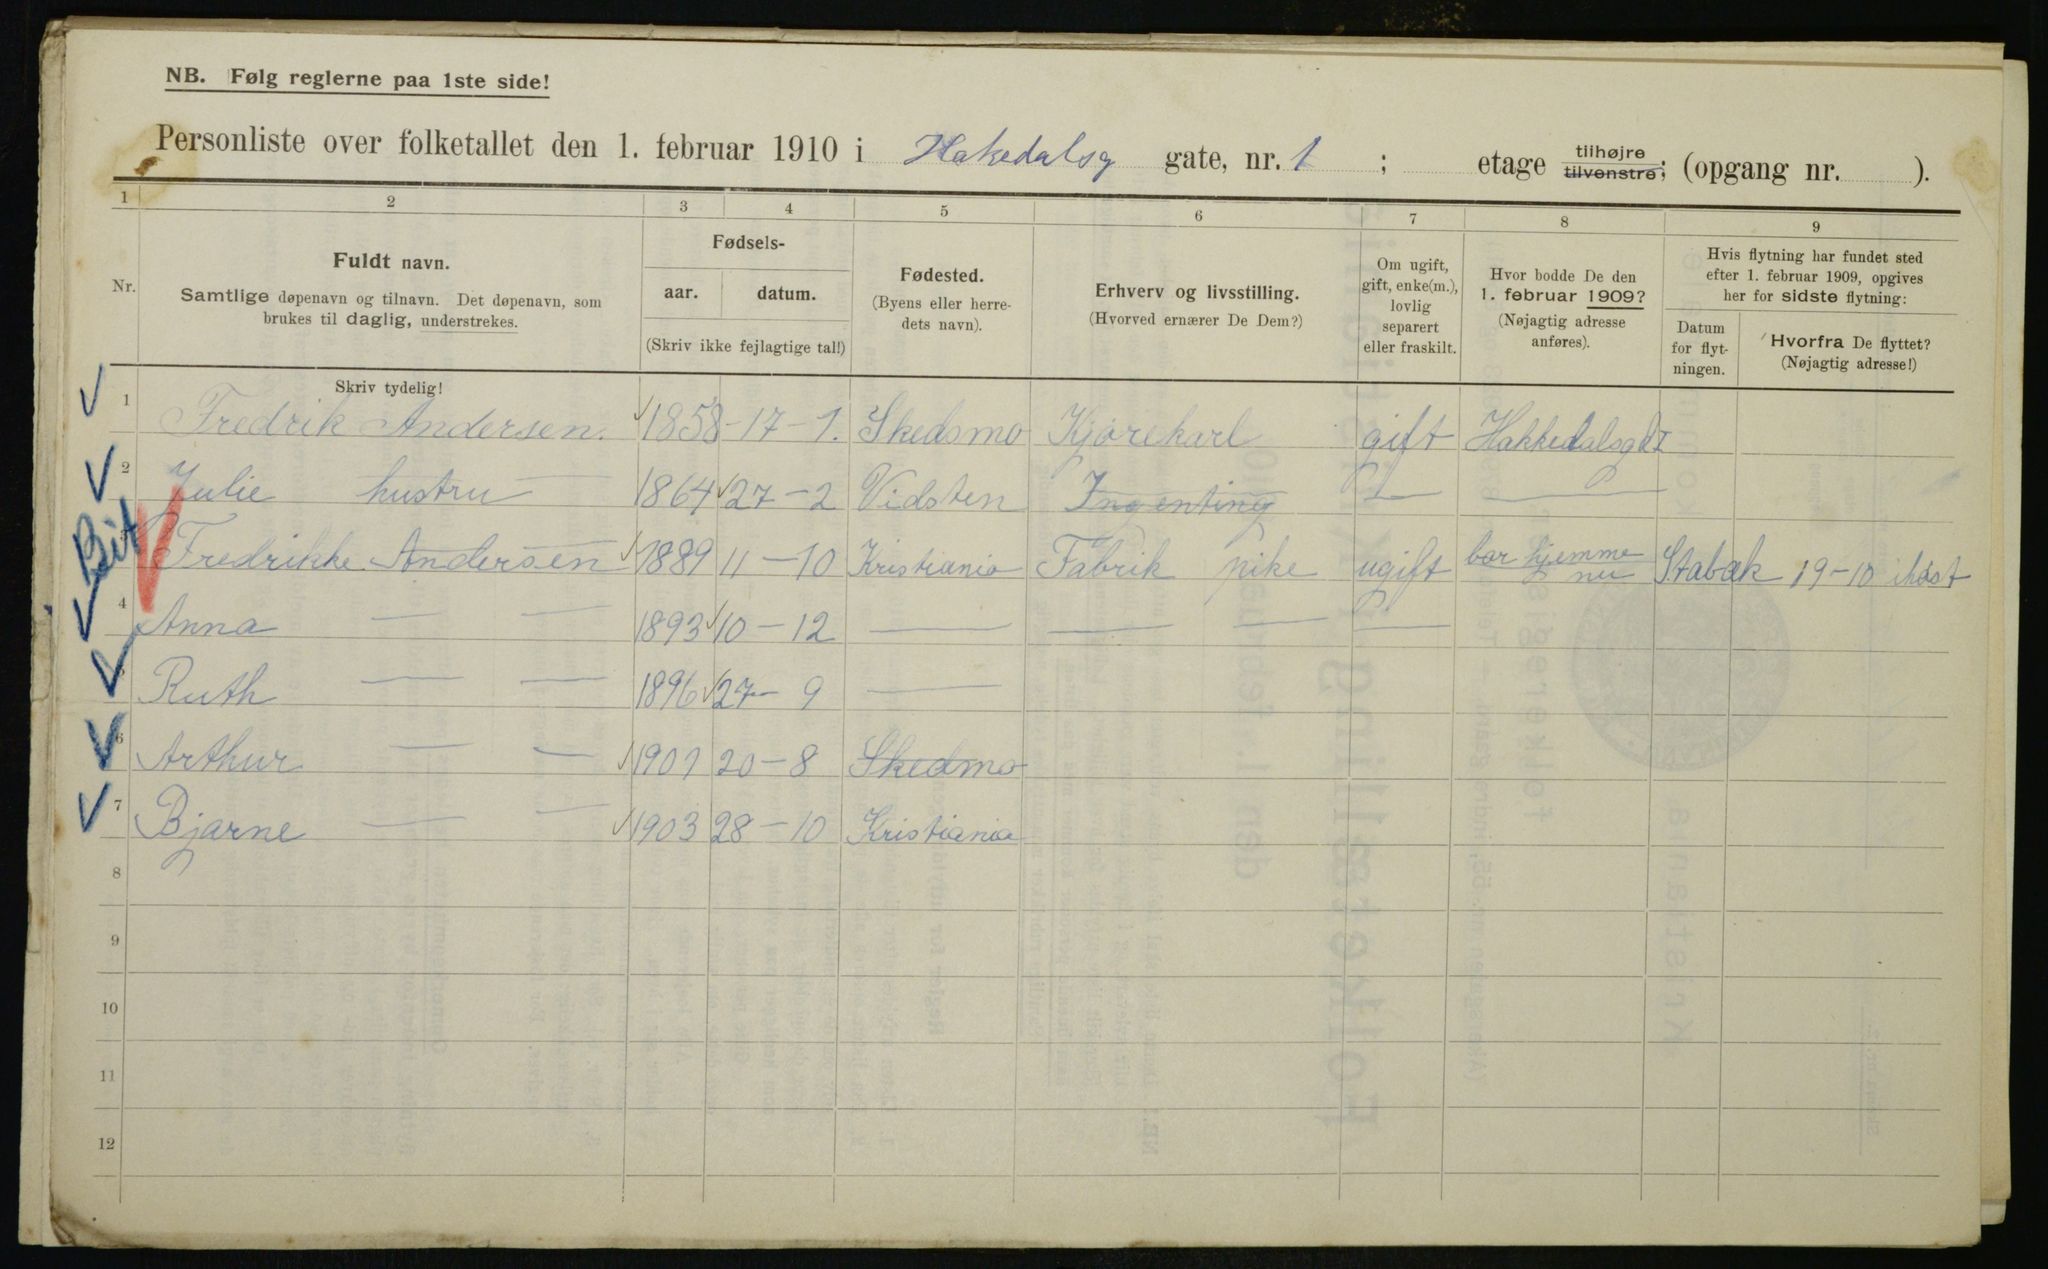 NB. Følg reglerne paa 1ste side!
Personliste over folketallet den 1. februar 1910 i Hakedalsg gate, nr. 1 ; etage tilhøjre tilvenstre; (opgang nr. ).
1 2 3 4 5 6 7 8 9
Nr.
Fuldt navn.
Samtlige døpenavn og tilnavn. Det døpenavn, som
brukes til daglig, understrekes.
Fødsels-
aar. datum.
(Skriv ikke fejlagtige tal!)
Fødested.
(Byens eller herre-
dets navn).
Erhverv og livsstilling.
(Hvorved ernærer De Dem?)
Om ugift,
gift, enke(m.),
lovlig
separert
eller fraskilt.
Hvor bodde De den
1. februar 1909?
(Nøjagtig adresse
anføres).
Hvis flytning har fundet sted
efter 1. februar 1909, opgives
her for sidste flytning:
Datum
for flyt-
ningen.
Hvorfra De flyttet?
(Nøjagtig adresse!)
Skriv tydelig!
1 Fredrik Andersen. 1858 - 17 - 1. Skedsmo Kjørekarl gift Hakkedalsgd 1
2 Julie hustru — 1864 27 - 2 Vidsten Ingenting — —
Bit
3 Fredrikke Andersen 1889 11 - 10 Kristiania Fabrik pike ugift bor hjemme nu Stabæk 19-10 ihøst
4 Anna — — 1893 10 - 12 — — — —
5 Ruth — — 1896 27 - 9 —
6 Arthur — — 1901 20 - 8 Skedmo
7 Bjarne — — 1903 28 - 10 Kristiania
8
9
10
11
12